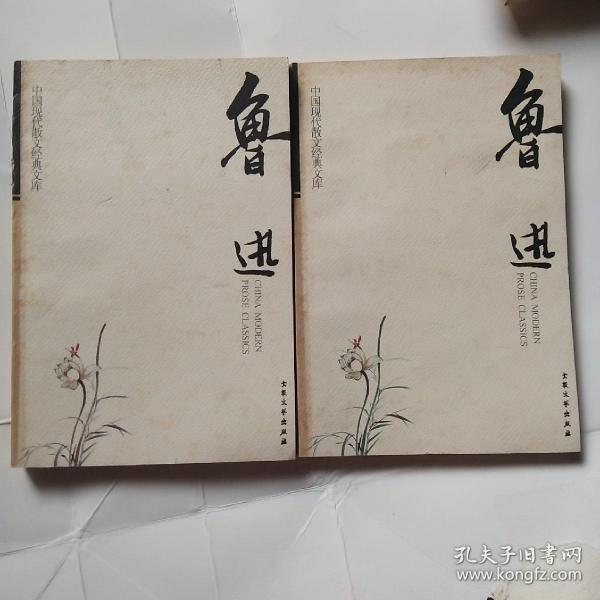 中国现代散文经典文库
鲁迅
CHINA MODERN
PROSE CLASSICS
大众文艺出版社
中国现代散文经典文库
鲁迅
CHINA MODERN
PROSE CLASSICS
大众文艺出版社
孔夫子旧书网
www.kongfz.com